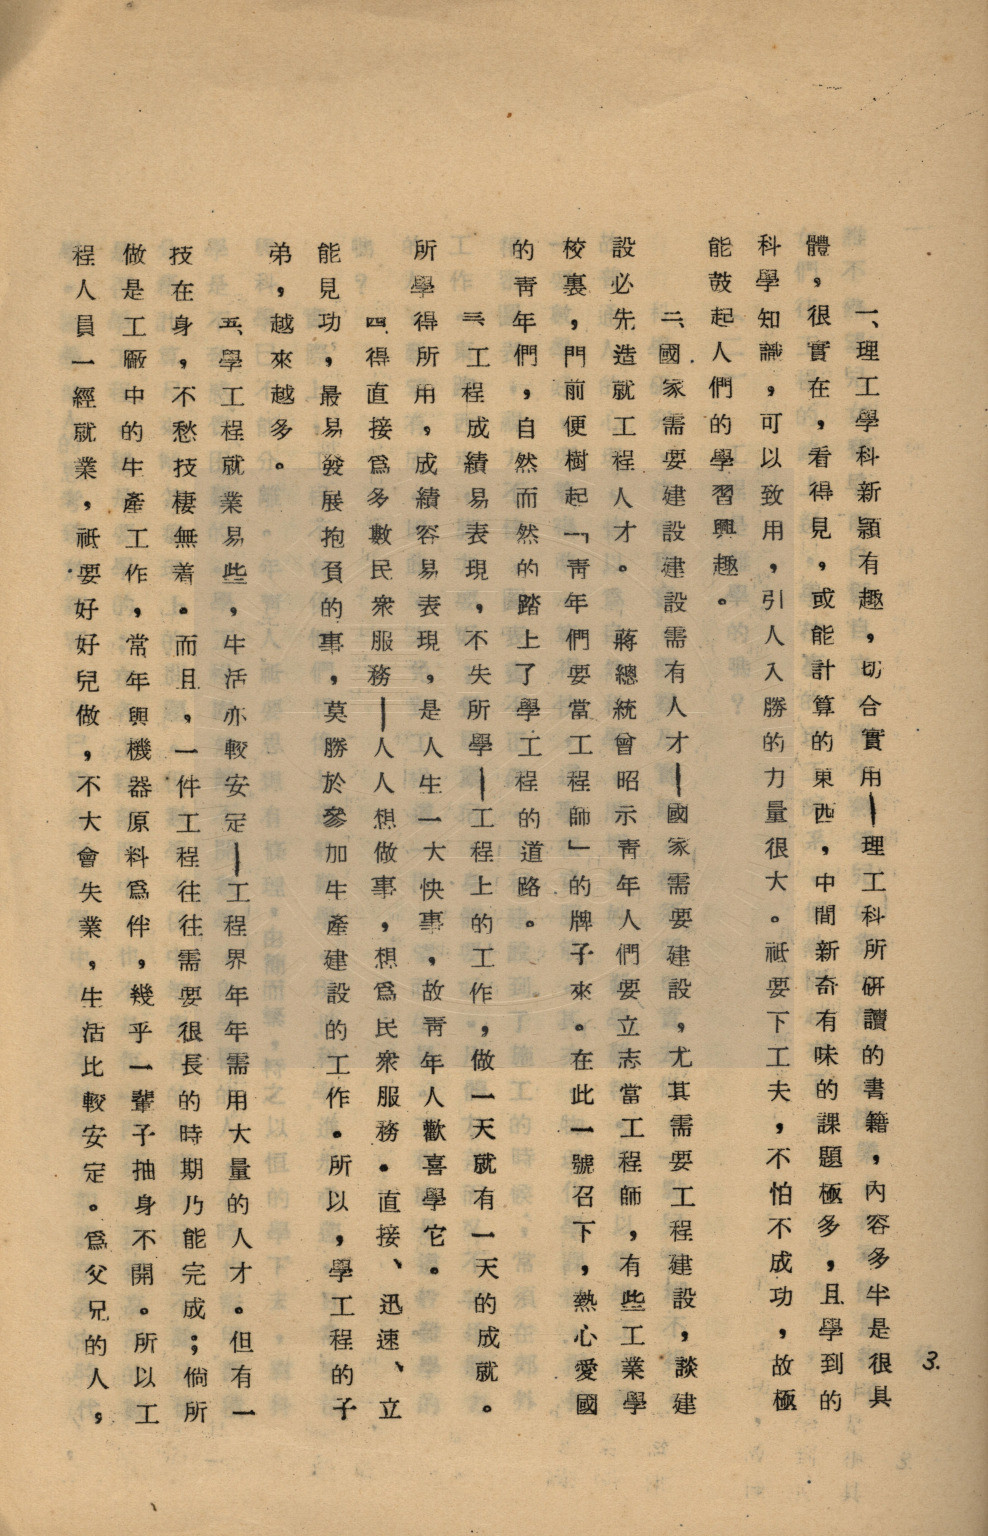 一、理工學科新穎有趣，切合實用—理工科所研讀的書籍，內容多半是很具
體，很實在，看得見，或能計算的東西，中間新奇有味的課題極多，且學到的
科學知識，可以致用，引人入勝的力量很大。祇要下工夫，不怕不成功，故極
能鼓起人們的學習興趣。
二、國家需要建設建設需有人才—國家需要建設，尤其需要工程建設，談建
設必先造就工程人才。蔣總統曾昭示靑年人們要立志當工程師，有些工業學
校裏，門前便樹起「靑年們要當工程師」的牌子來。在此一號召下，熱心愛國
的靑年們，自然而然的踏上了學工程的道路。
三、工程成績易表現，不失所學—工程上的工作，做一天就有一天的成就。
所學得所用，成績容易表現，是人生一大快事，故靑年人歡喜學它。
四、得直接爲多數民衆服務—人人想做事，想爲民衆服務。直接、迅速、立
能見功，最易發展抱負的事，莫勝於參加生產建設的工作。所以，學工程的子
弟，越來越多。
五、學工程就業易些，生活亦較安定—工程界年年需用大量的人才。但有一
技在身，不愁技棲無着。而且，一件工程往往需要很長的時期乃能完成；倘所
做是工廠中的生產工作，常年與機器原料爲伴，幾乎一輩子抽身不開。所以工
程人員一經就業，祇要好好兒做，不大會失業，生活比較安定。爲父兄的人，
3.